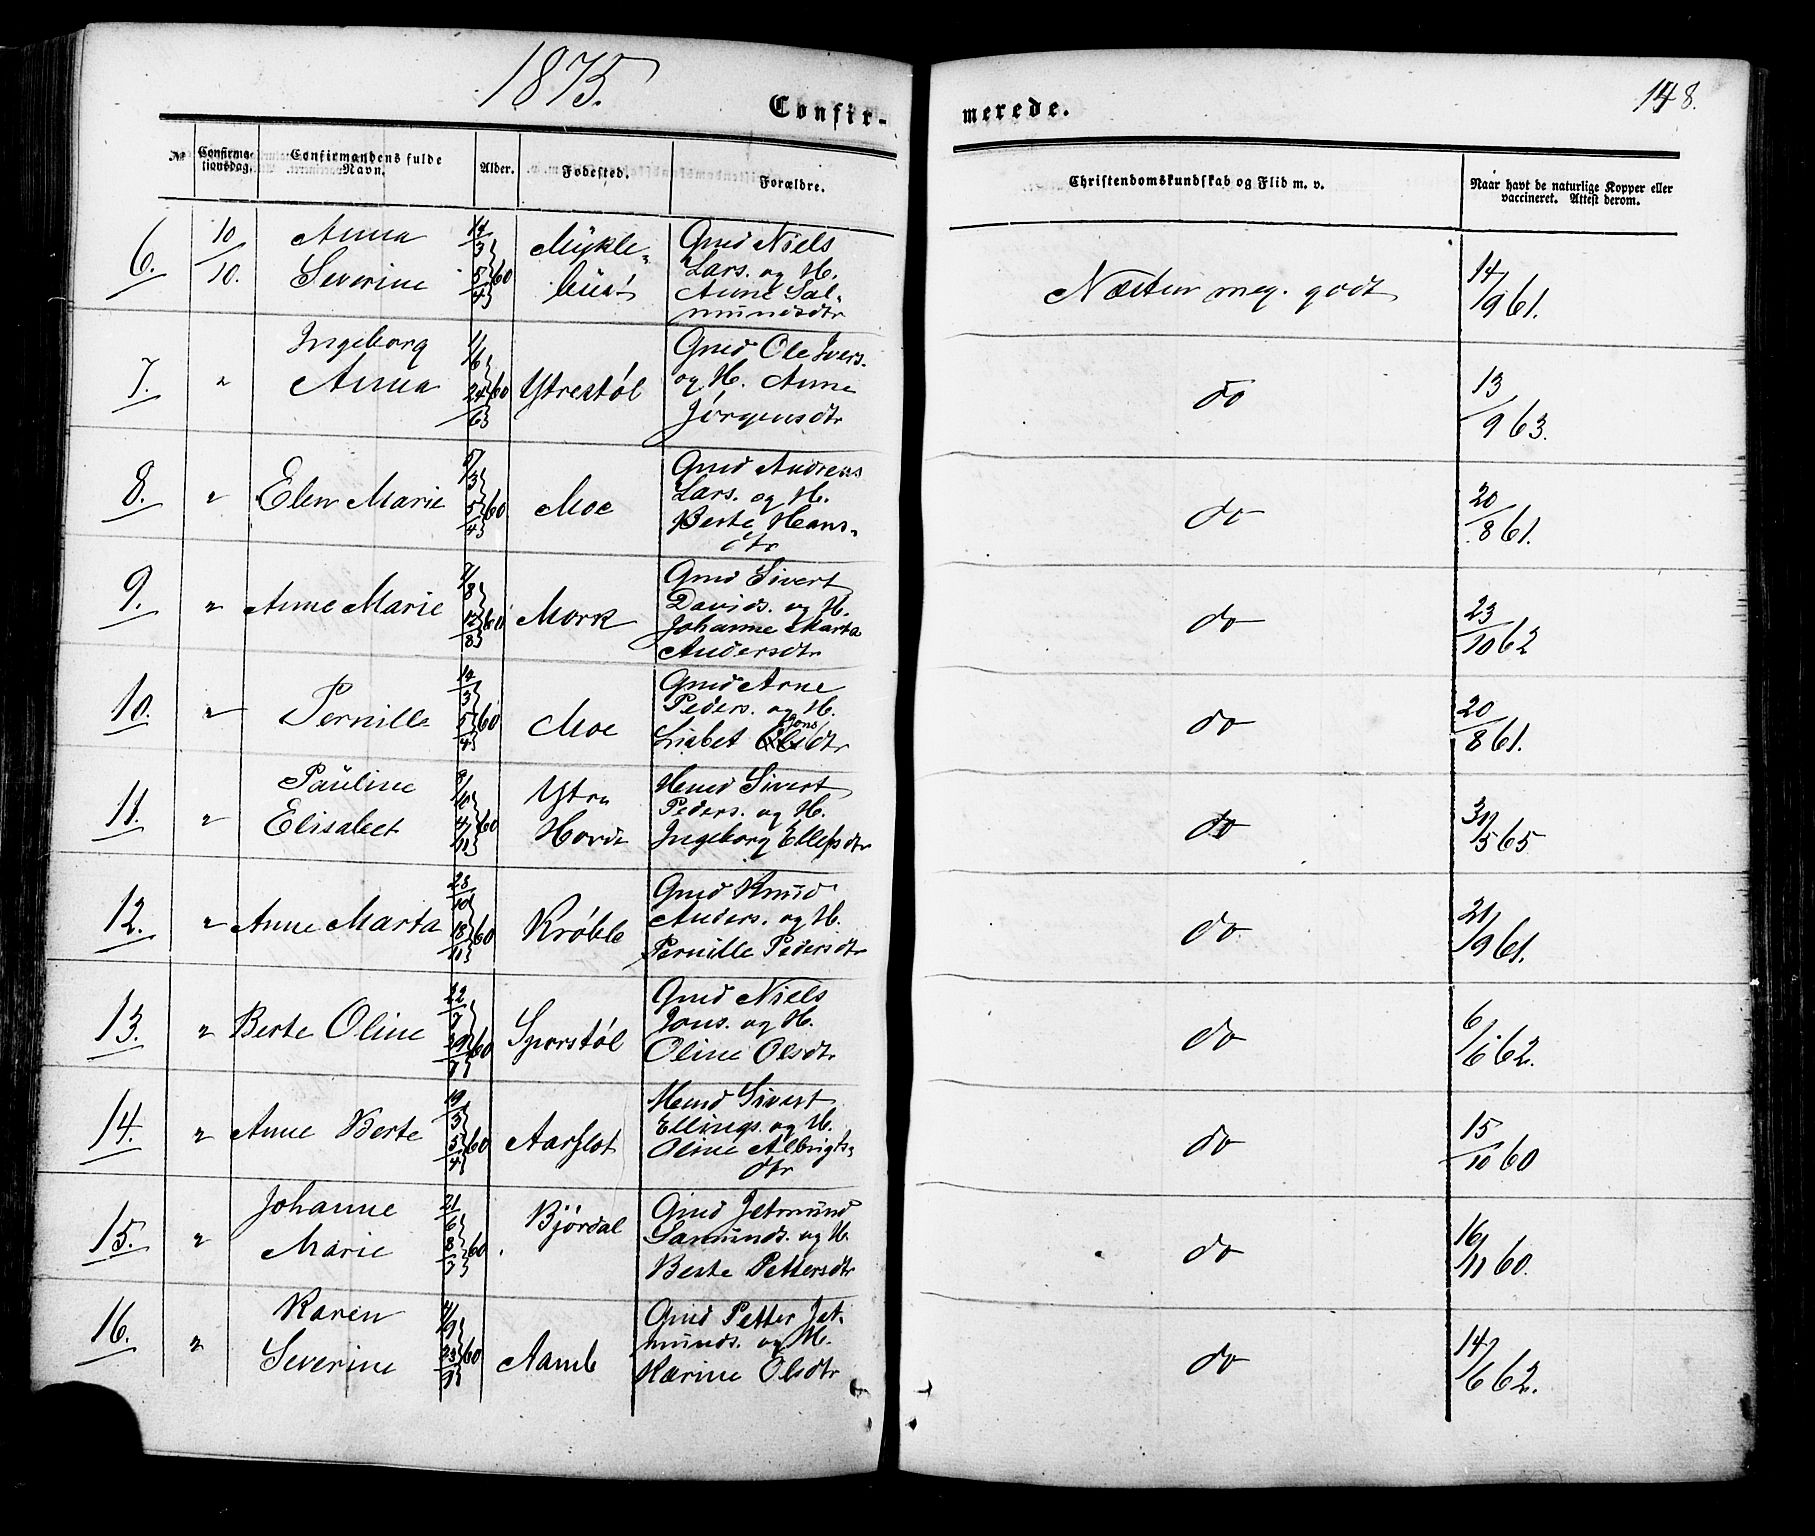 1875.
148.
Confir-
merede.
№
Confirma-
tionsdag.
Confirmandens fulde
Navn.
Alder.
Fødested.
Forældre.
Christendomskundskab og Flid m. v.
Naar havt de naturlige Kopper eller
vaccineret. Attest derom.
6. 10/10. Anna Severine 14/3 5/4 60 Mykle- bust
Gmd Niels
Lars. og H.
Anne Sal-
mundsdtr
Næsten meg. godt 14/9 61.
7. " Ingeborg Anna 1/6 24/6 60 Ytrestøl
Gmd Ole Ivers.
og H. Anne
Jørgensdtr
do 13/9 63.
8. " Elen Marie 5/3 5/4 60 Moe
Gmd Andreas
Lars. og H.
Berte Hans-
dtr
do 20/8 61.
9. " Anne Marie 1/8 12/8 60 Mork
Gmd Sivert
Davids. og H.
Johanne Marta
Andersdtr
do 23/10 62
10. " Pernille 14/3 5/4 60 Moe
Gmd Arne
Peders. og H.
Lisbet Jonsdtr
do 20/8 61.
11. " Pauline Elisabet 8/10 4/11 60 Ytre Hovde
Hmd Sivert
Peders. og H.
Ingeborg Ellefsdtr
do 31/5 65
12. " Anne Marta 28/10 18/11 60 Krøvle
Gmd Knud
Anders. og H.
Pernille Pedersdtr
do 21/9 61.
13. " Berte Oline 22/7 29/7 60 Sporstøl
Gmd Niels
Jons. og H.
Oline Olsdtr
do 6/6 62.
14. " Anne Berte 19/3 5/4 60 Aarflot
Hmd Sivert
Ellings. og H.
Oline Albrigts-
dtr
do 15/10 60
15. " Johanne Marie 21/6 8/7 60 Bjørdal
Gmd Jetmund
Samunds. og H.
Berte Pettersdtr
do 16/11 60.
16. " Karen Severine 4/9 23/9 60 Aamb
Gmd Petter Jet-
munds. og H.
Karine Olsdtr
do 14/6 62.